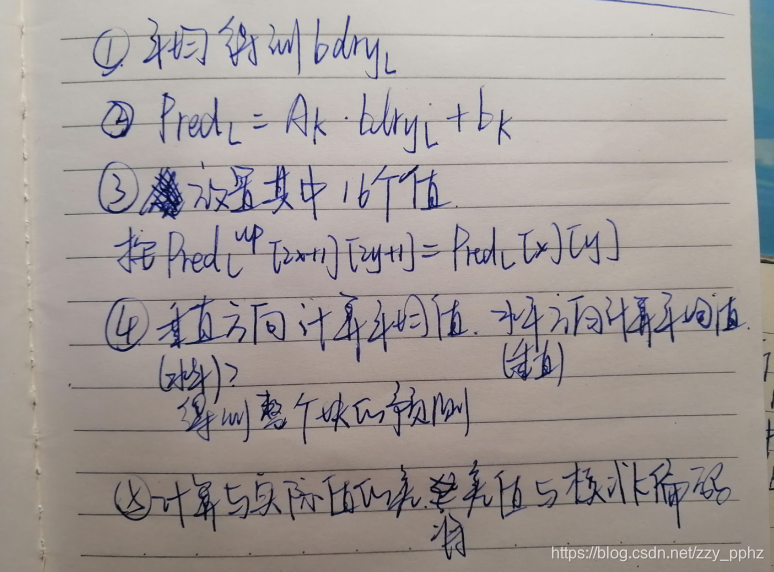 ① 平均得到 bdry_L
② Pred_L = A_k · bdry_L + b_k
③ 放置其中16个值
按 Pred_L^up [2x+1][2y+1] = Pred_L[x][y]
④ 垂直方向计算平均值. 水平方向计算平均值.
(水平)? (垂直)
得到整个块的预测
⑤ 计算与实际值的差. 将差值与模式k编码
https://blog.csdn.net/zzy_pphz